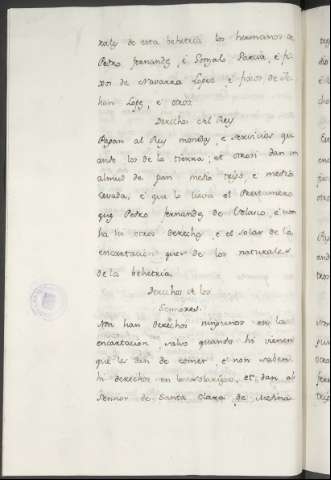 rales de esta behetria los hermanos de
Pedro fernandz, é Gonzalo Garcia, é fi-
xos de Navarra Lopez, é fixos de Jo-
han Lopz, é otros
Derechos del Rey
Pagan al Rey moneda, é servicios qu
ando los de la tierra, et otrosi dan un
almud de pan medio trigo é medio
cevada, é que lo lieva el Prestamero
que Pedro fernandz de Velasco, é non
ha hi otros derechos, é el solar de la
encartacion quer de los naturales
de la behetria.
Derechos de los
Sennores.
Non han derechos ningunos en la
encartacion, salvo quando hi vienen
que les dan de comer é non saben
hi derechos en los solariegos, et dan al
Sennor de Santa Clara de Medina